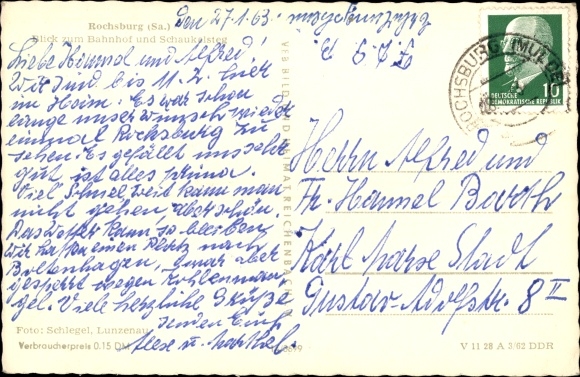 Rochsburg (Sa.)
Blick zum Bahnhof und Schaukelsteg
Den 27.1.63.
Liebe Hannel und Alfred!
Wir sind bis 11.2. hier
im Heim. Es war schon
lange unser Wunsch wieder
einmal Rochsburg zu
sehen. Es gefällt uns sehr
gut ist alles prima.
Viel Schnee, weit kann man
nicht gehen, aber schön.
Das Wetter kann so bleiben.
Wir hatten einen Platz nach
Boltenhagen, war aber
gesperrt wegen Kohlenman-
gel. Viele herzliche Grüße
senden Euch
Liese u. Marthel.
VEB BILD UND HEIMAT REICHENBACH
ROCHSBURG (MULDE)
10
DEUTSCHE
DEMOKRATISCHE REPUBLIK
Herrn Alfred und
Fr. Hannel Barth
Karl-Marx-Stadt
Gustav-Adolfstr. 8 II
Foto: Schlegel, Lunzenau
Verbraucherpreis 0.15 DM
V 11 28 A 3/62 DDR